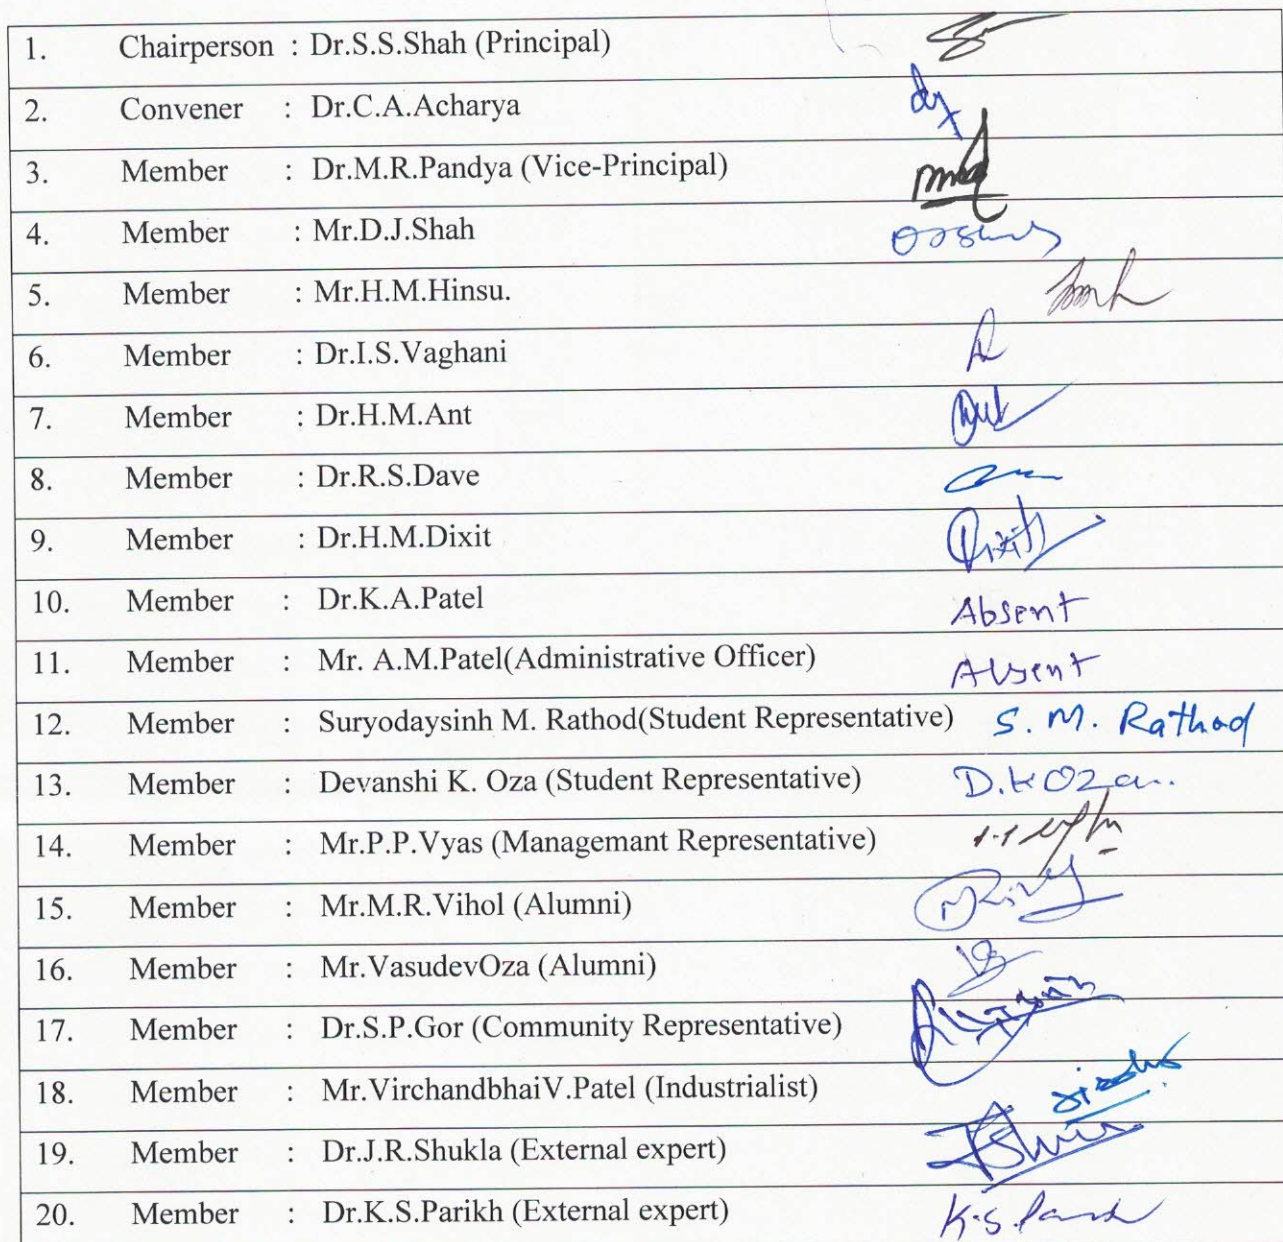 1. Chairperson : Dr.S.S.Shah (Principal)
2. Convener : Dr.C.A.Acharya
3. Member : Dr.M.R.Pandya (Vice-Principal)
4. Member : Mr.D.J.Shah
5. Member : Mr.H.M.Hinsu.
6. Member : Dr.I.S.Vaghani
7. Member : Dr.H.M.Ant
8. Member : Dr.R.S.Dave
9. Member : Dr.H.M.Dixit Dixit
10. Member : Dr.K.A.Patel Absent
11. Member : Mr. A.M.Patel(Administrative Officer) Absent
12. Member : Suryodaysinh M. Rathod(Student Representative) S. M. Rathod
13. Member : Devanshi K. Oza (Student Representative) D.K Oza.
14. Member : Mr.P.P.Vyas (Managemant Representative)
15. Member : Mr.M.R.Vihol (Alumni)
16. Member : Mr.VasudevOza (Alumni)
17. Member : Dr.S.P.Gor (Community Representative)
18. Member : Mr.VirchandbhaiV.Patel (Industrialist)
19. Member : Dr.J.R.Shukla (External expert)
20. Member : Dr.K.S.Parikh (External expert) K.S.